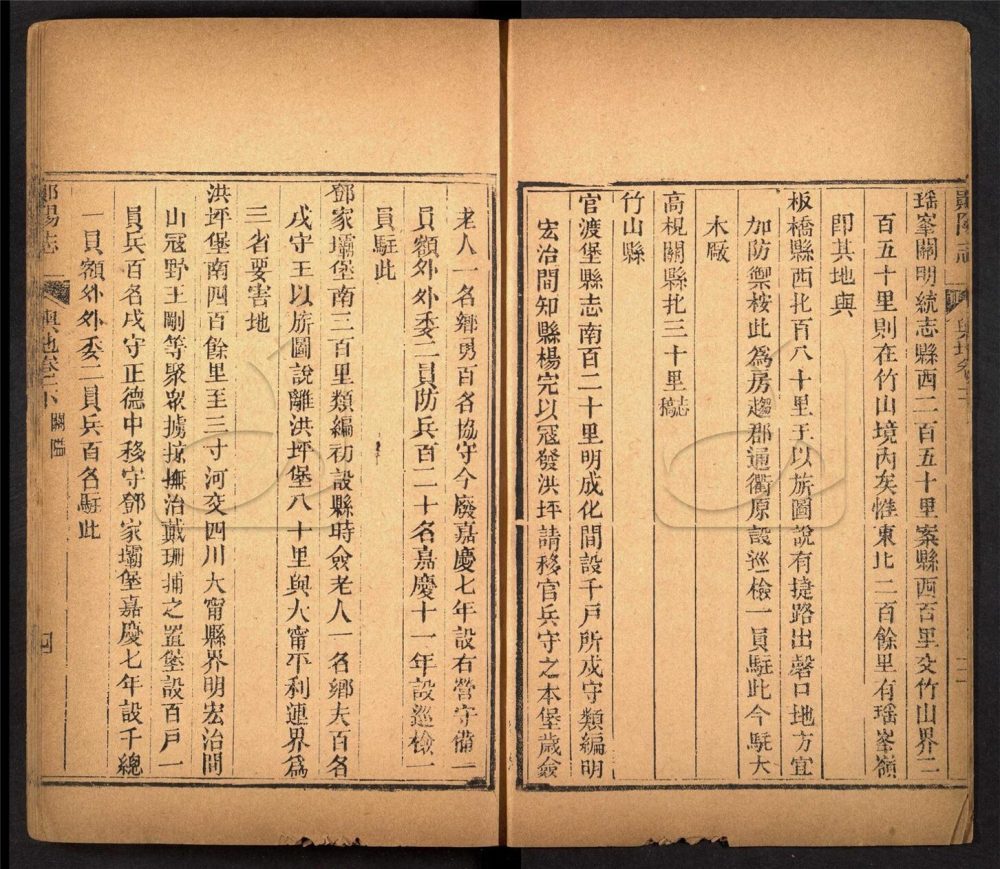 瑶峯關明統志縣西二百五十里案縣西百里交竹山界二
百五十里則在竹山境內矣惟東北二百餘里有瑶峯嶺
卽其地與
板橋縣西北百八十里王以旂圖說有捷路出磬口地方宜
加防禦桉此為房趨郡通衢原設巡檢一員駐此今駐大
木厰
高梘關縣北三十里縣志
竹山縣
官渡堡縣志南百二十里明成化間設千戸所戍守類編明
宏治間知縣楊完以冦發洪坪請移官兵守之本堡歲僉
老人一名鄉勇百名協守今廢嘉慶七年設右營守備一
員額外外委二員防兵百二十名嘉慶十一年設巡檢一
員駐此
鄧家壩堡南三百里類編初設縣時僉老人一名鄉夫百名
戍守王以旂圖說離洪坪堡八十里與大甯平利連界為
三省要害地
洪坪堡南四百餘里至三寸河交四川大甯縣界明宏治間
山冦野王剛等聚衆擄掠撫治戴珊捕之置堡設百戸一
員兵百名戍守正德中移守鄧家壩堡嘉慶七年設千總
一員額外外委二員兵百名駐此
鄖陽志
輿地卷二下
四